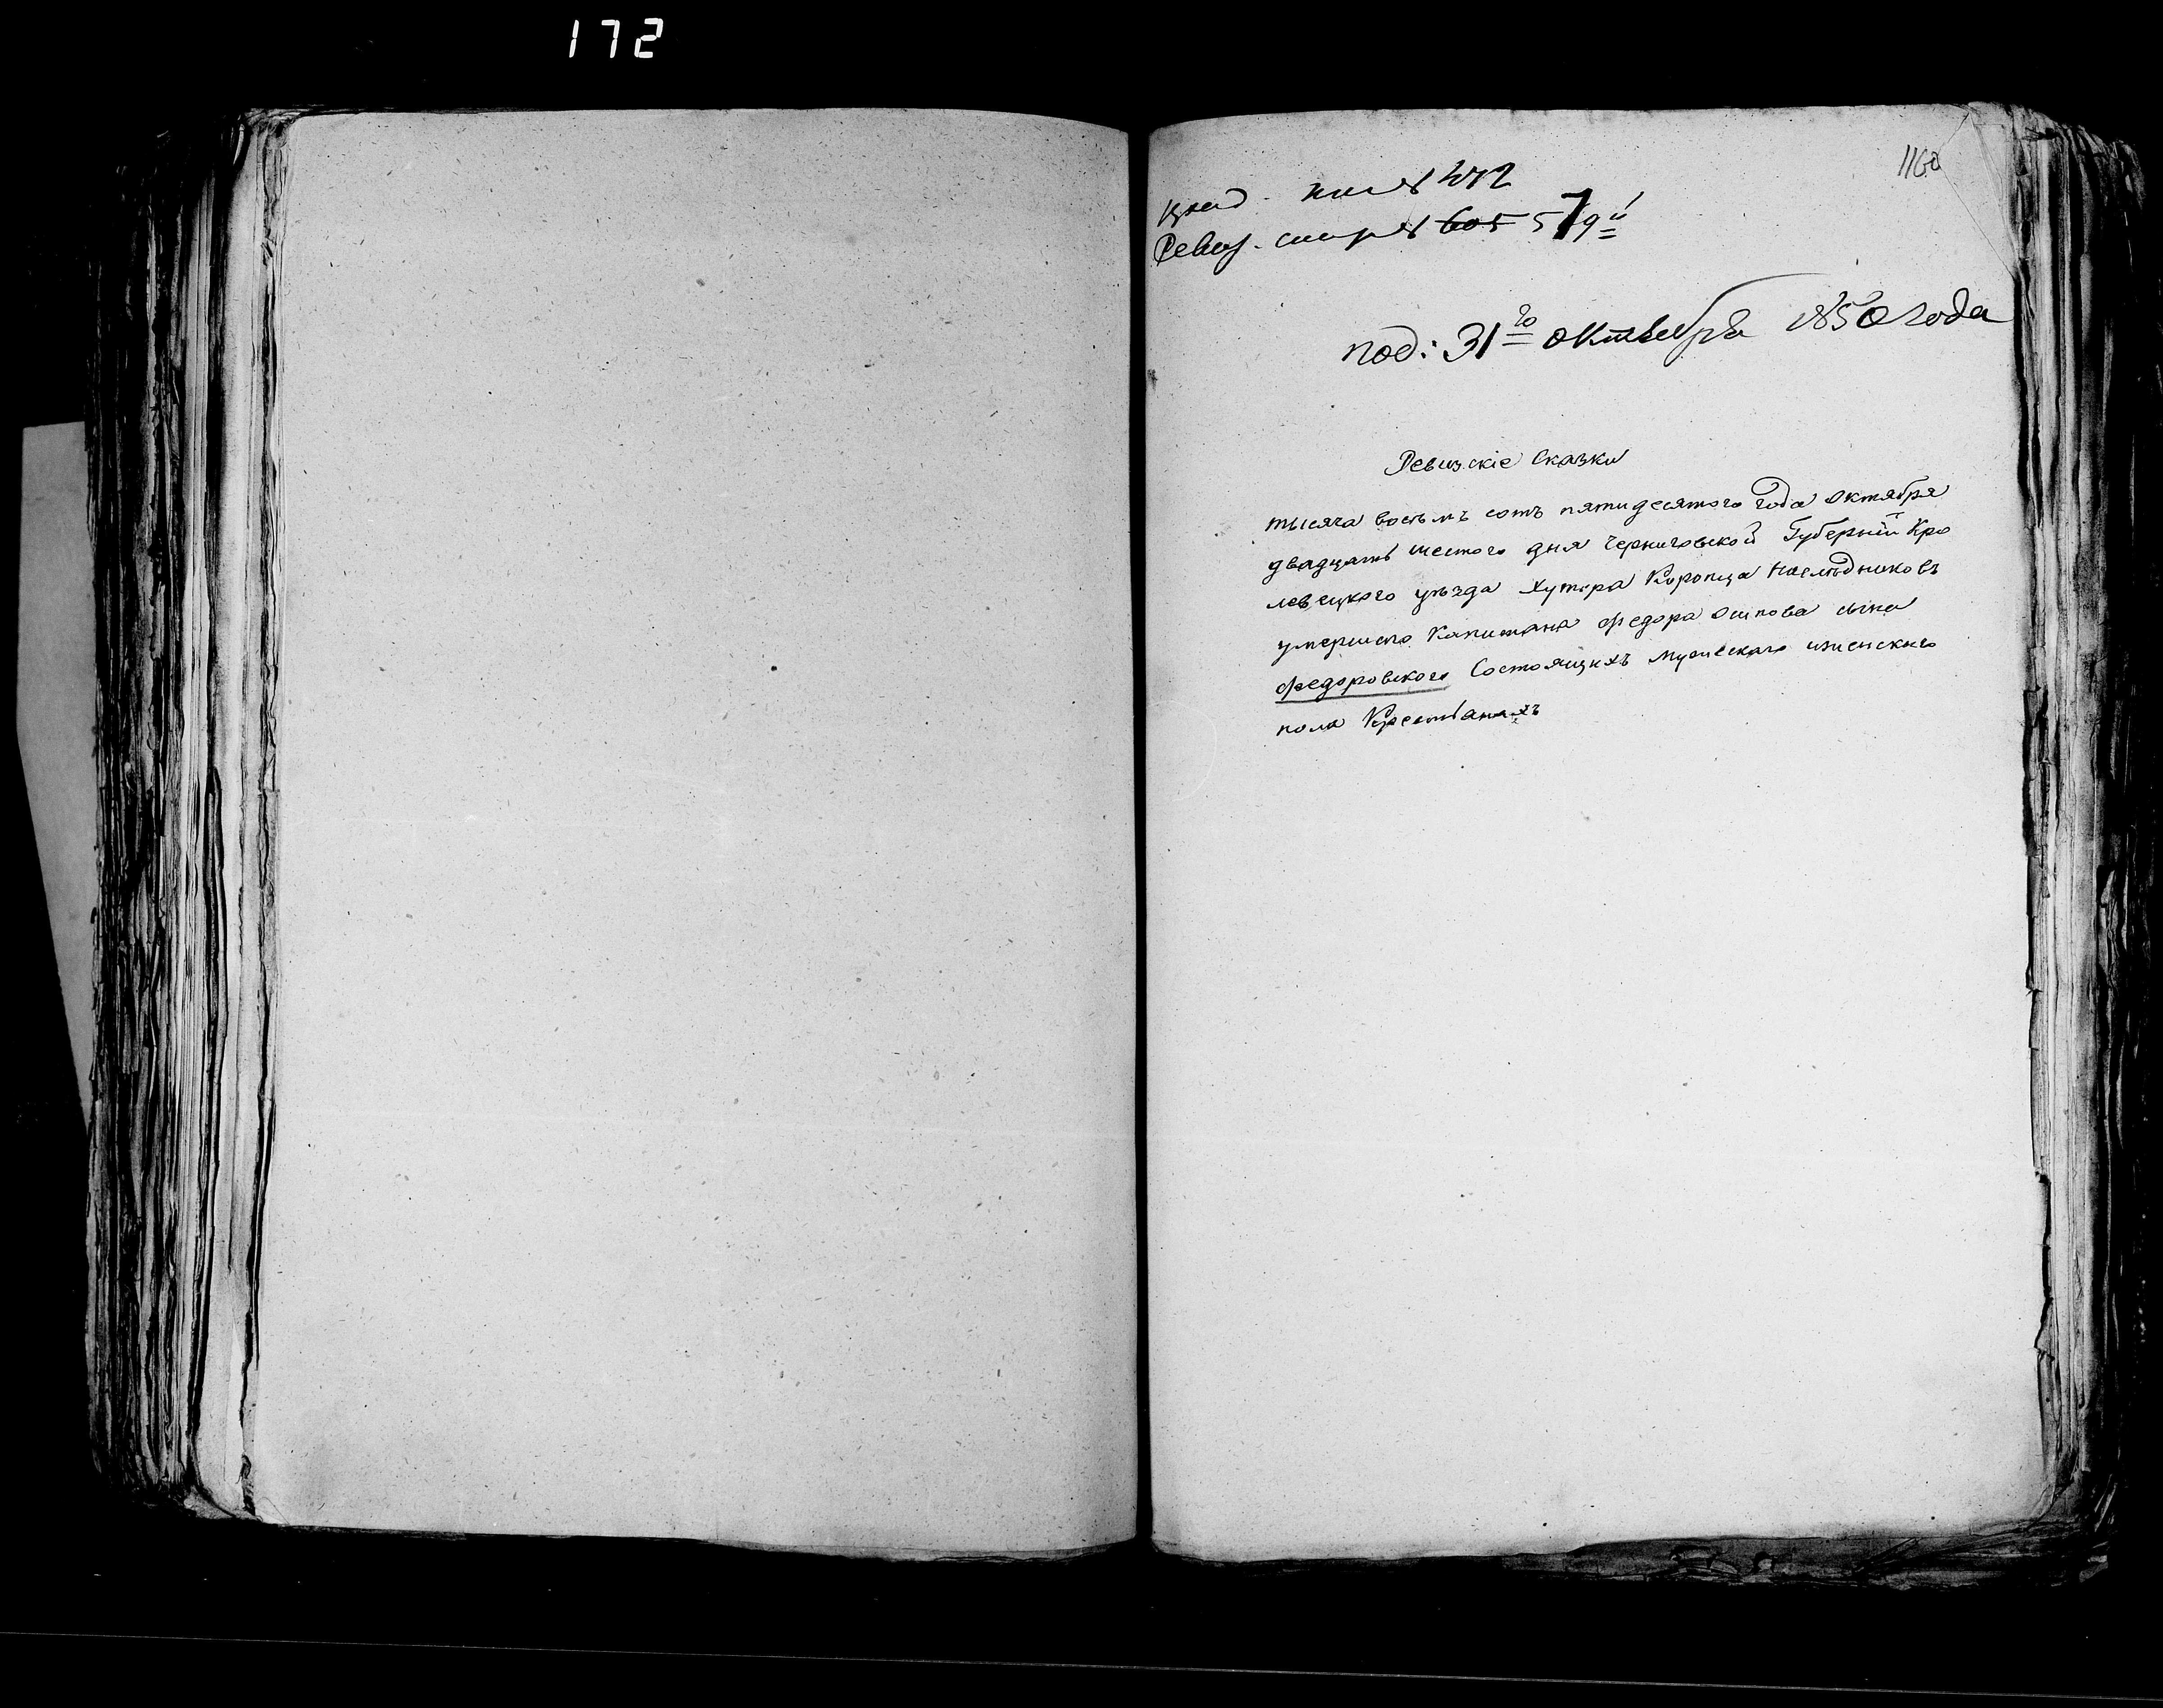 172
1160
Ревиз. 605 579й
под: 31го октебра 1850 года
Ревизскіе Сказки
тысяча восьмъ сотъ пятидесятого года октября
двадцать шестого дня Черниговской Губерніи Кро
левецкого уѣзда хутора Коропца наслѣдниковъ
умершего Капитана Федора Осипова сына
Федоровского Состоящихъ мужескаго иженскаго
пола Крестьянахъ